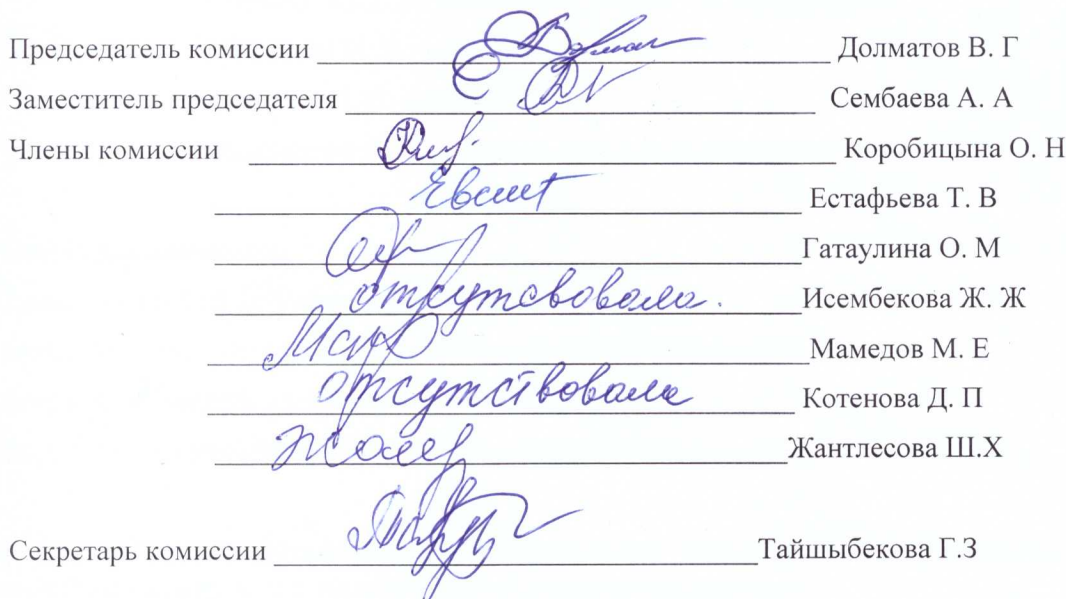 Председатель комиссии Долматов В. Г
Заместитель председателя Сембаева А. А
Члены комиссии Коробицына О. Н
Естафьева Т. В
Гатаулина О. М
отсутсвовала. Исембекова Ж. Ж
Мамедов М. Е
отсутствовала Котенова Д. П
Жантлесова Ш.Х
Секретарь комиссии Тайшыбекова Г.З